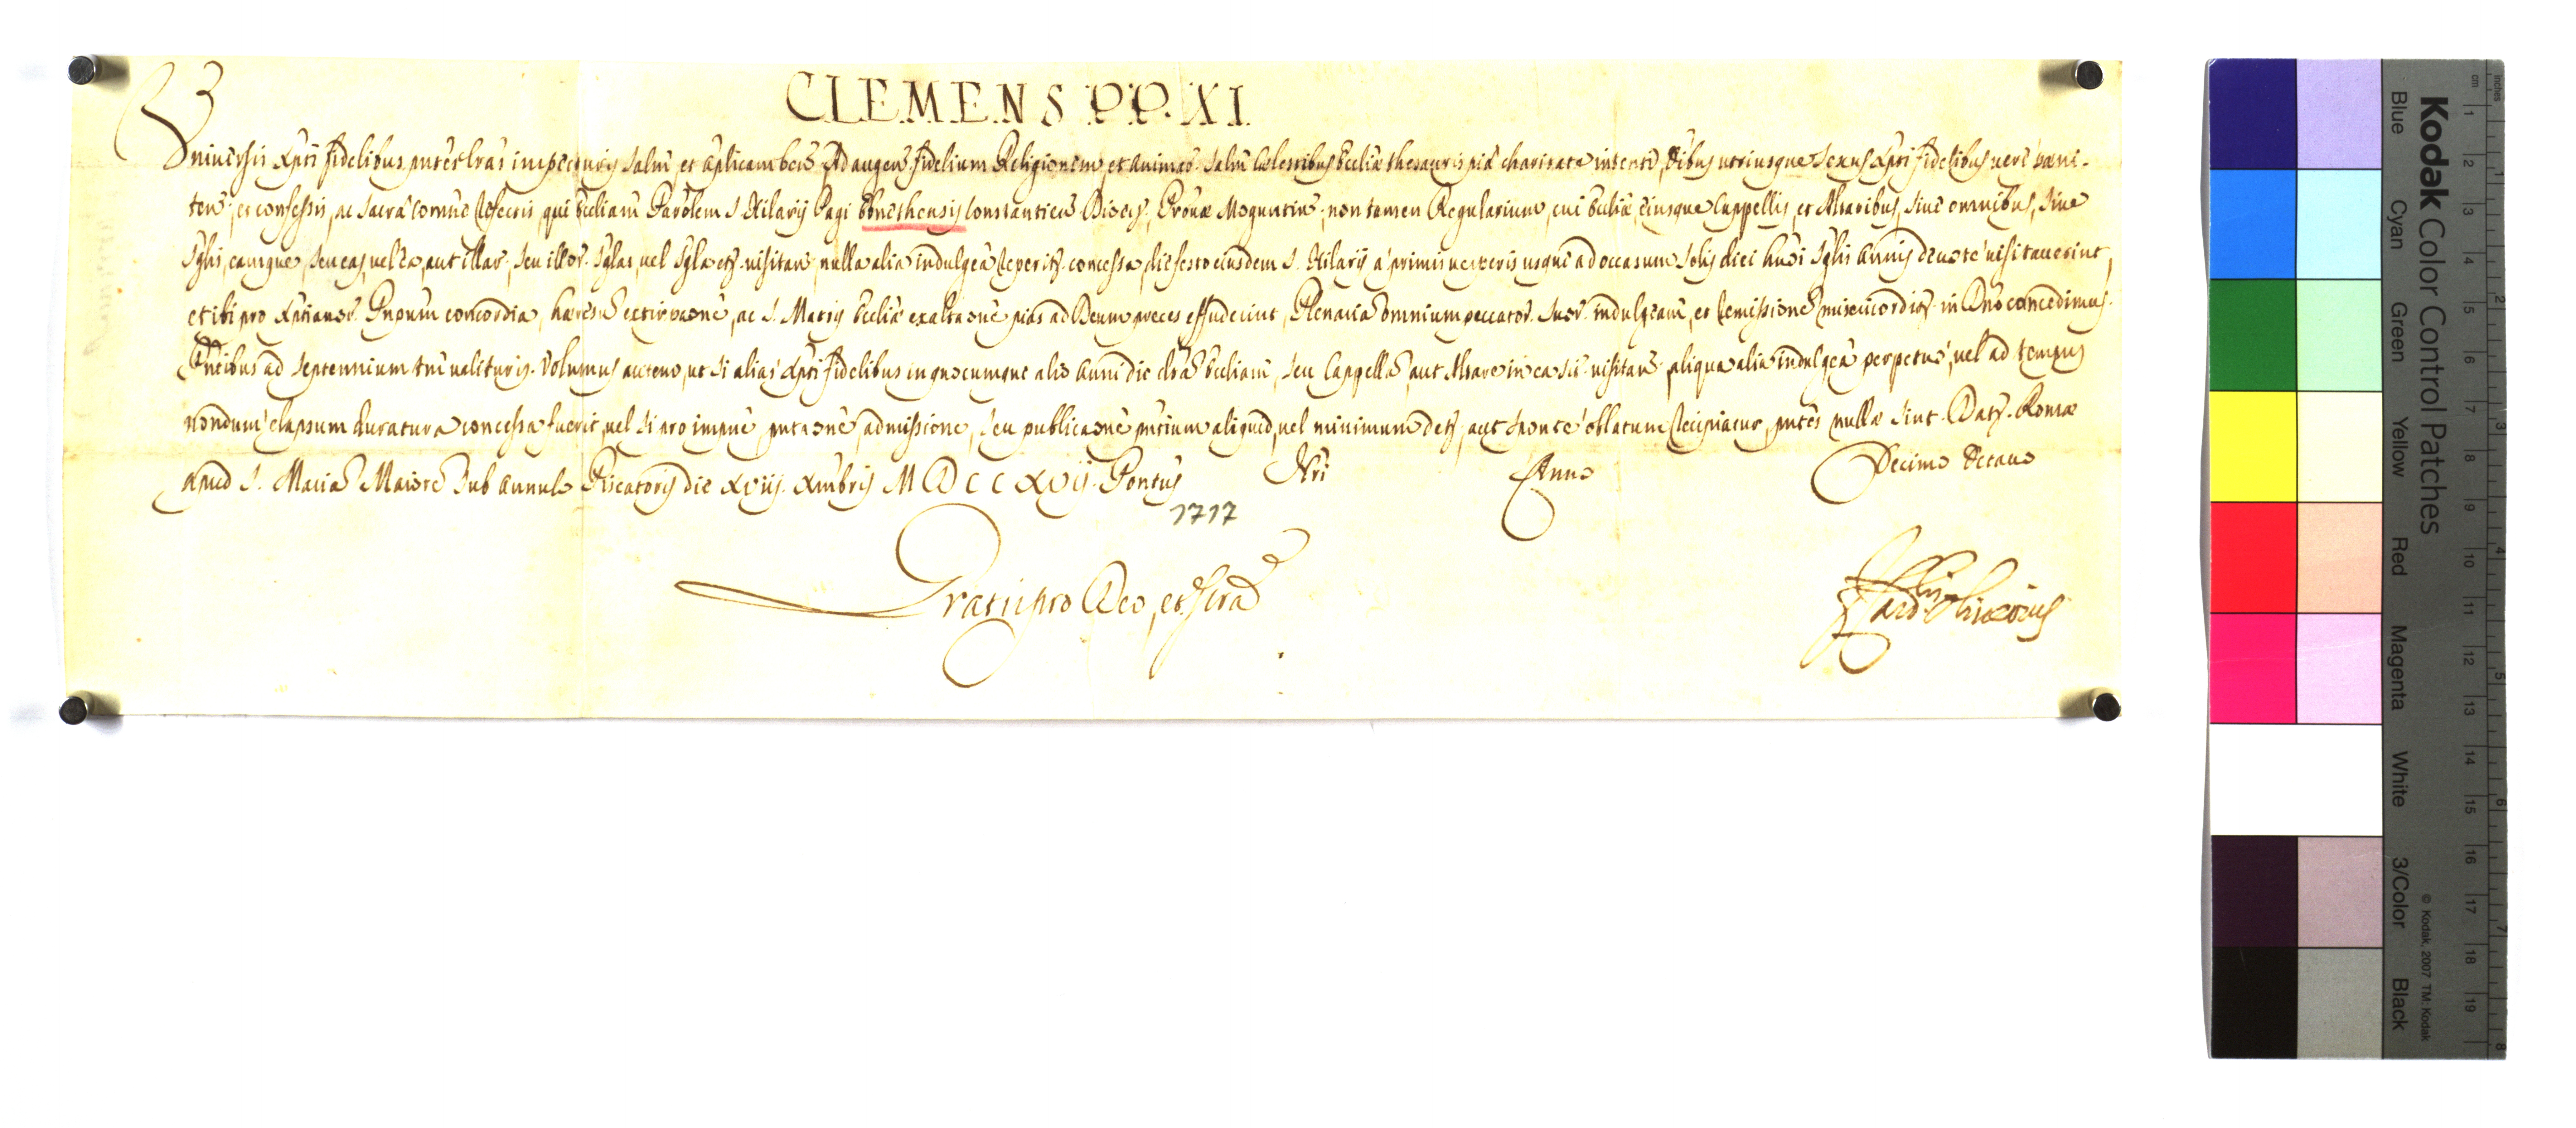 CLEMENS P.P. XI.
Universis Xpti fidelibus pntes lras inspecturis salm et aplicam bens Ad augen fidelium Religionem et animar salm celestibus Ecclie thesauris pia charitate intenti, Oibus utriusque sexus Xpti fidelibus vere peni-
ten, et confessis, ac sacra Comne refectis, qui Ecliam Parolem S. Hilarij Pagi Constantien Diocis, Provae Moguntin, non tamen Regularium, cui Eclia, eiusque Cappellis, et Altaribus, sive omnibus, sive
Sglis, eamque, seu eas, vel ea, aut illar, seu illor Sglas, vel Sgla etc. visitan nulla alia indulgea reperitr concessa, die festo eiusdem S. Hilarij a primis vesperis usque ad occasum solis diei huoi Sglis Annis devote visitaverint,
et ibi pro Xptianor Pnpum concordia, haeresu extirpaone, ac S. Matris Ecclie exaltaone pias ad Deum preces effuderint, Plenaria omnium peccator suor indulgeam, et remissione misericorditr in Dno concedimus.
Pntibus ad septennium tm valituris. Volumus autem, ut si alias Xpti fidelibus in quocumque alio Anni die dra Ecliam, seu Cappella aut Altare in ea sit visitan aliqua alia indulgea perpetuo, vel ad tempus
nondum elapsum duratura concessa fuerit, vel si pro impne pntaone, admissione, seu publicaone pntium aliquid, vel minimum detr, aut sponte oblatum recipiatur, pntes nulla sint. Datr. Romae
apud S. Maria Maiore sub Annulo Piscatoris die xviij. Xmbris MDCCXVij. Pontus Nri Anno Decimo Octavo
1717
Gratis pro Deo, et Scra